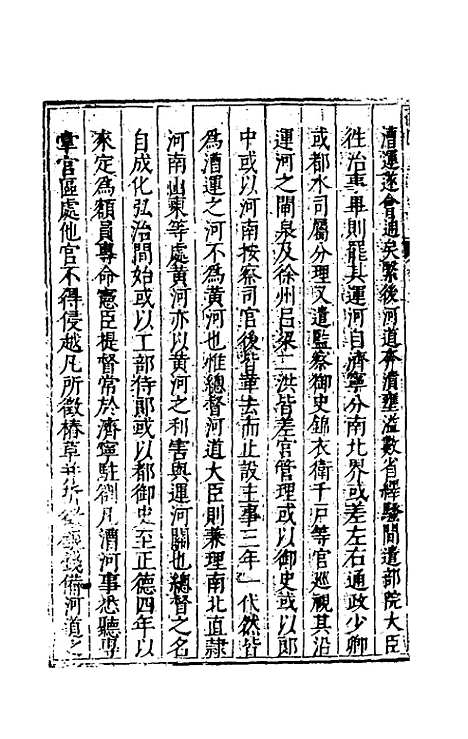 漕運遂會通矣緊後河道奔潰壅溢數省繹騷間遣部院大臣
徃治事畢則罷其運河自濟寧分南北界或差左右通政少卿
或都水司屬分理又遣監察御史錦衣衛千戸等官巡視其沿
運河之閘泉及徐州呂梁二洪皆差官管理或以御史或以郎
中或以河南按察司官後皆革去而止設主事三年一代然皆
為漕運之河不為黃河也惟總督河道大臣則兼理南北直隸
河南山東等處黃河亦以黃河之利害與運河關也總督之名
自成化弘治間始或以工部侍郎或以都御史至正德四年以
來定為額員專命憲臣提督常於濟寧駐劄凡漕河事悉聽專
掌官區處他官不得侵越凡所徵樁草并折徵銀錢備河道之